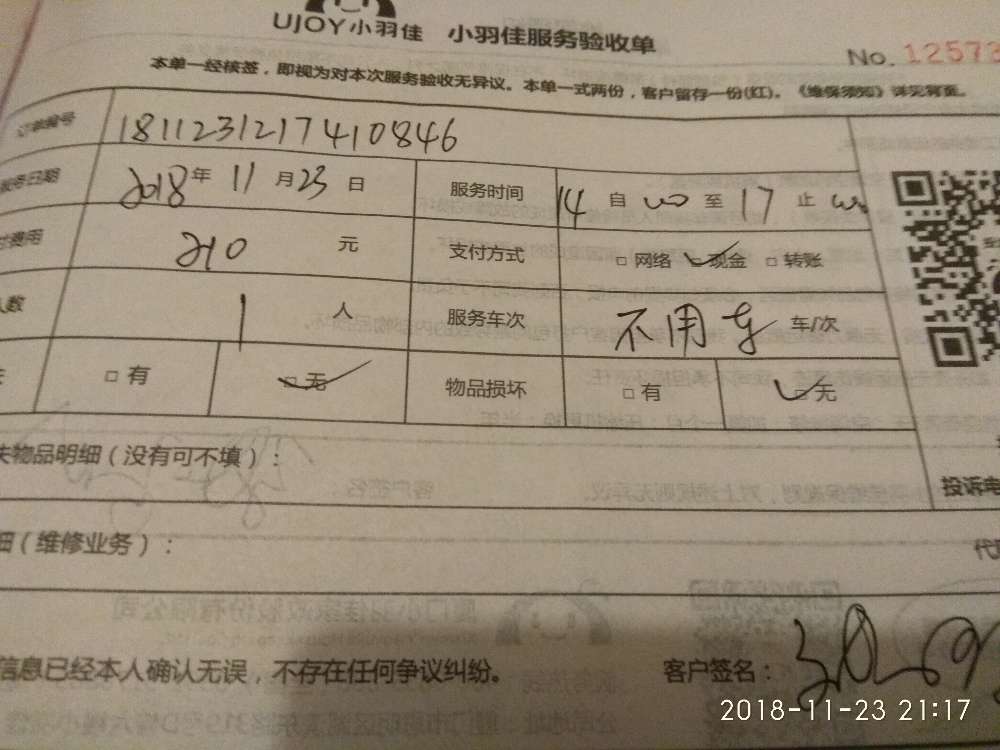 UJOY小羽佳 小羽佳服务验收单
No. 12573
本单一经核签，即视为对本次服务验收无异议。本单一式两份，客户留存一份(红)。《维保须知》详见背面。
订单编号 181123121741０846
服务日期 2018年 11 月 23 日 服务时间 14 自 00 至 17 止
付费用 210 元 支付方式 □ 网络 □ 现金 □ 转账
人数 1 人 服务车次 不用车 车/次
□ 有 □ 无 物品损坏 □ 有 □ 无
失物品明细（没有可不填）：
投诉电
细（维修业务）：
信息已经本人确认无误，不存在任何争议纠纷。 客户签名：
2018-11-23 21:17